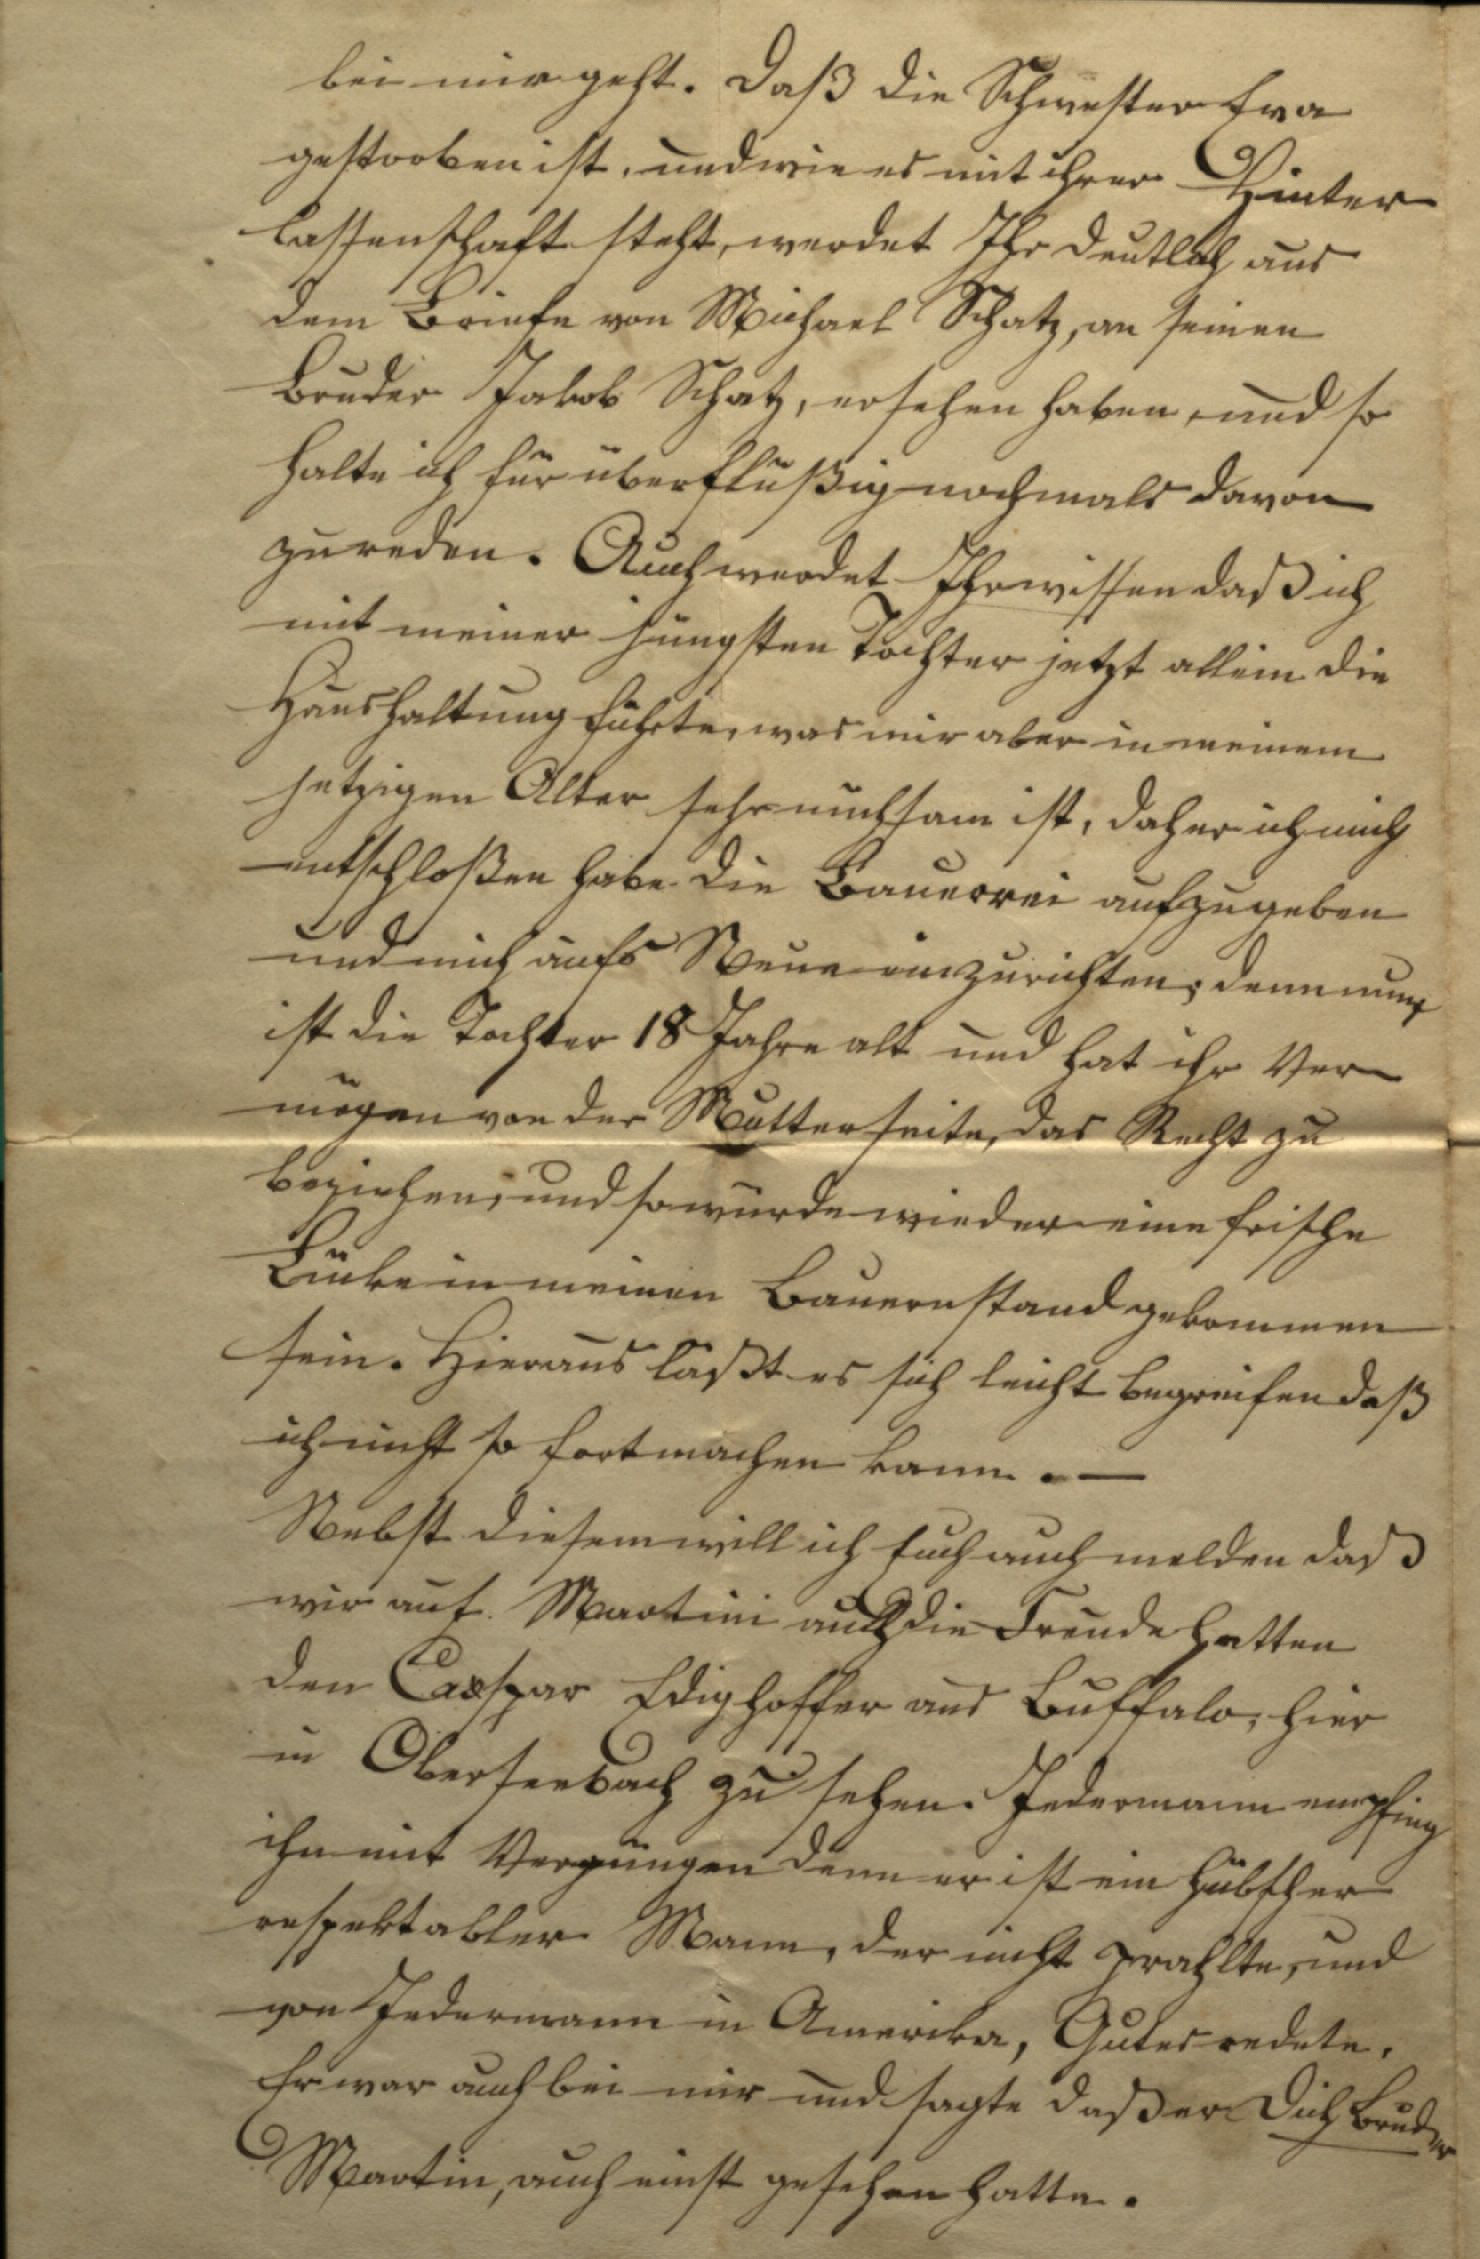 bei mir geht. Daß die Schwester Eva
gestorben ist, und wie es mit ihrer Hinter
lassenschaft steht, werdet Ihr deutlich aus
dem Briefe von Michael Schatz, an seinen
Bruder Jakob Schatz, ersehen haben, und so
halte ich für überflüßig nochmals davon
zu reden. Auch werdet Ihr wissen daß ich
mit meiner jüngsten Tochter jetzt allein die
Haushaltung führte, was mir aber in meinem
jetzigen Alter sehr mühsam ist, daher ich mich
entschloßen habe die Bauerei aufzugeben
und mich aufs Neue einzurichten; denn nun
ist die Tochter 18 Jahre alt und hat ihr Ver
mögen von der Mutterseite, das Recht zu
beziehen, und so würde wieder eine frische
Lücke in meinen Bauernstand gekommen
sein. Hieraus läßt es sich leicht begreifen daß
ich nicht so fortmachen kann. —
Nebst diesem will ich Euch auch melden daß
wir auf Martini auch die Freude hatten
den Caspar Edighoffer aus Buffalo, hier
in Oberseebach zu sehen. Jedermann empfing
ihn mit Vergnügen denn er ist ein hübscher
respektabler Mann, der nicht prahlte, und
von Jedermann in Amerika, Gutes redete.
Er war auch bei mir und sagte daß er Dich Bruder
Martin, auch einst gesehen hatte.